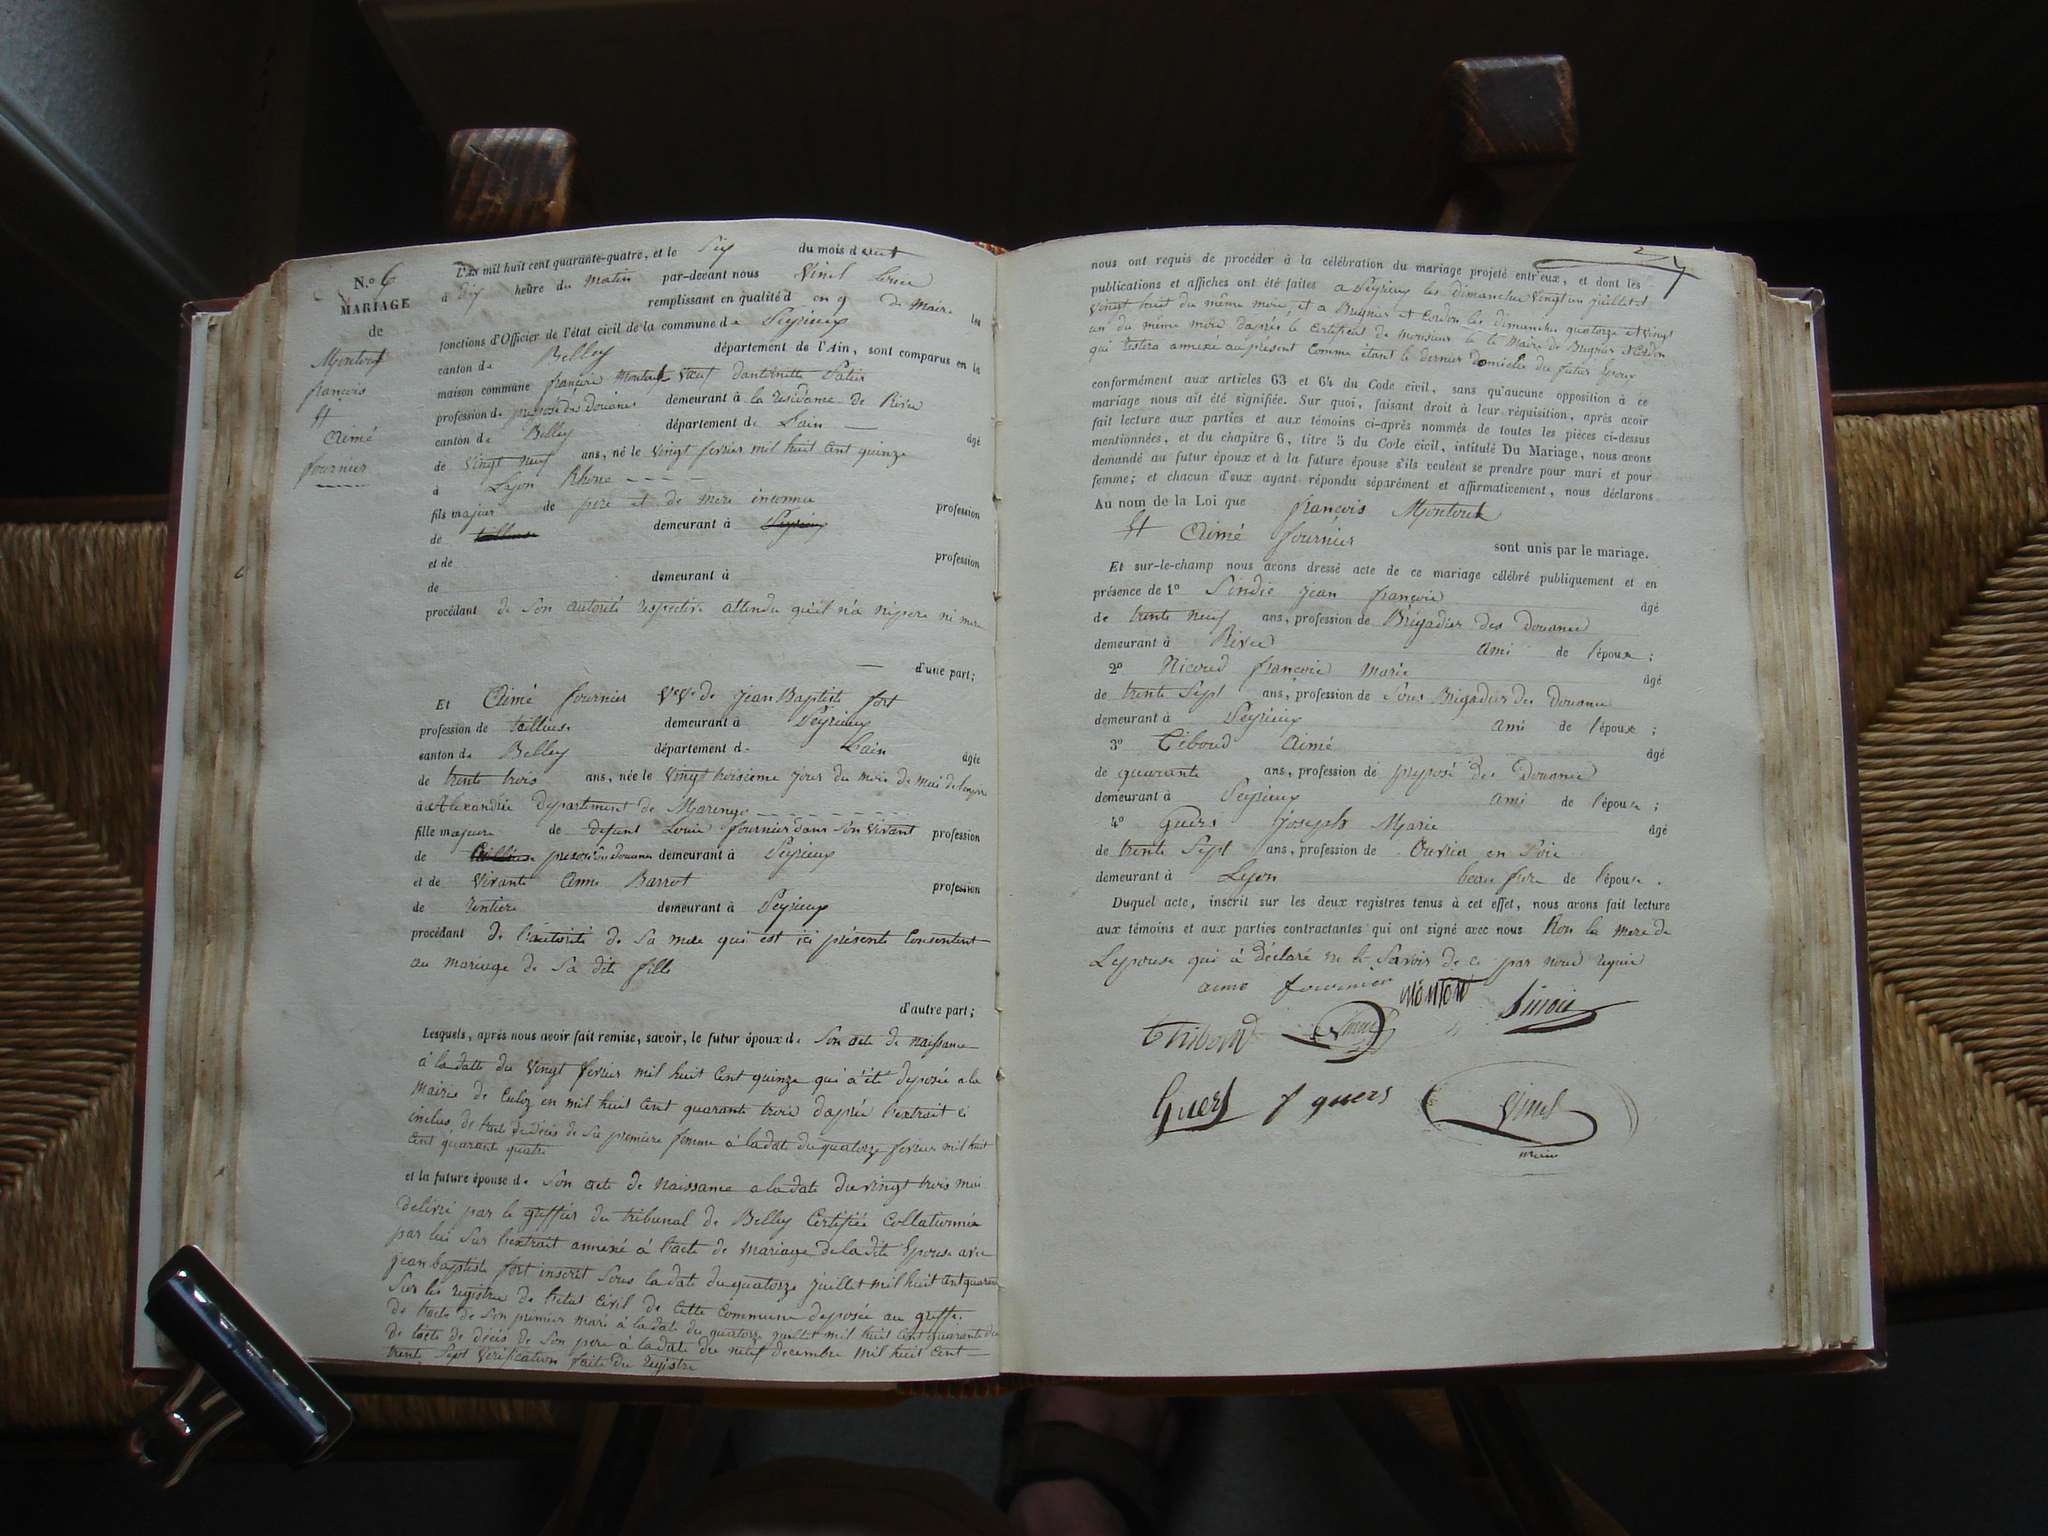 N.º 6
MARIAGE
de
Montout
françois
Et
Aimé
fournier
L'An mil huit cent quarante-quatre, et le Six du mois d'aout
à dix heure du matin par-devant nous Vinel
remplissant en qualité d de Maire les
fonctions d'Officier de l'état civil de la commune de Peyrieux
canton de Belley département de l'Ain, sont comparus en la
maison commune françois Montout Veuf d'antoinette
profession de préposé des douanes demeurant à la résidance de
canton de Belley département de Lain âgé
de vingt neuf ans, né le vingt fevrier mil huit cent quinze
à Lyon Rhone
fils majeur de pere et de mere inconnue profession
de demeurant à
et de profession
de demeurant à
procédant de son autorité respective attendu qu'il n'a ni pere ni mere
d'une part;
Et Aimé fournier Vve de jean Baptiste fort
profession de tailleuse demeurant à Peyrieux
canton de Belley département de Lain âgée
de trente trois ans, née le vingt troisieme jour du mois de mai de
à Alexandrie département de Marengo
fille majeure de defunt Louis fournier dans son vivant profession
de preposé des douanes demeurant à Peyrieux
et de vivante Anne Barrot profession
de rentiere demeurant à Peyrieux
procédant de l'autorité de Sa mere qui est ici présente Consentent
au mariage de Sa dite fille
d'autre part;
Lesquels, après nous avoir fait remise, savoir, le futur époux de Son acte de naissance
à la datte du vingt fevrier mil huit cent quinze qui a été deposée a la
Mairie de Culoz en mil huit cent quarante trois d'après l'extrait ci
inclus, de décès de Sa premiere femme à la date du quatorze fevrier mil huit
cent quarante quatre
et la future épouse de Son acte de naissance a la date du vingt trois mai
délivré par le greffier du tribunal de Belley Certifiée Collationnée
par lui Sur l'extrait annexé à l'acte de mariage de la dite Epouse avec
jean baptiste fort inscrit Sous la date du quatorze juillet mil huit cent quarante
Sur les registres de l'etat Civil de Cette Commune deposée au greffe.
de l'acte de Son premier mari à la date du quatorze juillet mil huit cent quarante
de l'acte de décès de Son pere à la date du neuf decembre mil huit cent
trente Sept Verification faite du registre
nous ont requis de procéder à la célébration du mariage projeté entr'eux, et dont les
publications et affiches ont été faites a Peyrieux les dimanches vingt un juillet et
vingt huit du même mois, et a Bregnier et Cordon les dimanches quatorze et vingt
un du même mois d'après le Certificat de monsieur le Maire de Bregnier et Cordon
qui restera annexé au présent Comme étant le dernier domicile du futur Epoux
conformément aux articles 63 et 64 du Code civil, sans qu'aucune opposition à ce
mariage nous ait été signifiée. Sur quoi, faisant droit à leur réquisition, après avoir
fait lecture aux parties et aux témoins ci-après nommés de toutes les pièces ci-dessus
mentionnées, et du chapitre 6, titre 5 du Code civil, intitulé Du Mariage, nous avons
demandé au futur époux et à la future épouse s'ils veulent se prendre pour mari et pour
femme; et chacun d'eux ayant répondu séparément et affirmativement, nous déclarons
Au nom de la Loi que françois Montout
Et Aimé fournier sont unis par le mariage.
Et sur-le-champ nous avons dressé acte de ce mariage célébré publiquement et en
présence de 1º jean françois âgé
de trente neuf ans, profession de Brigadier des Douanes
demeurant à ami de l'époux;
2º Nicoud françois Marie âgé
de trente Sept ans, profession de Sous Brigadier des Douanes
demeurant à Peyrieux ami de l'époux;
3º Tiboud Aimé âgé
de quarante ans, profession de preposé des Douanes
demeurant à Peyrieux ami de l'épouse;
4º Guers Joseph Marie âgé
de trente Sept ans, profession de Ouvrier en Soie
demeurant à Lyon beau frere de l'épouse.
Duquel acte, inscrit sur les deux registres tenus à cet effet, nous avons fait lecture
aux témoins et aux parties contractantes qui ont signé avec nous Non la mere de
Lepouse qui à déclaré ne le Savoir de ce par nous requis
aime fournier MONTOU
thiboud
Guers f guers Vinel
maire